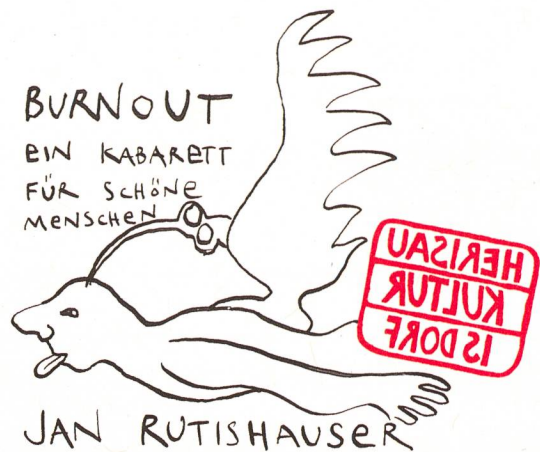 BURNOUT
EIN KABARETT
FÜR SCHÖNE
MENSCHEN
HERISAU
KULTUR
IS DORF
JAN RUTISHAUSER